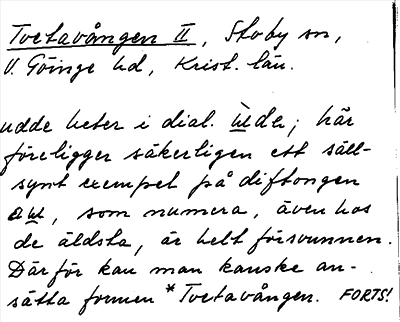 Tvetavången II, Stoby sn,
V. Göinge hd, Krist. län.
udde heter i dial. ùdde; här
föreligger säkerligen ett säll-
synt exempel på diftongen
aɯ, som numera, även hos
de äldsta, är helt försvunnen.
Därför kan man kanske an-
sätta formen *Tvetavången. FORTS!